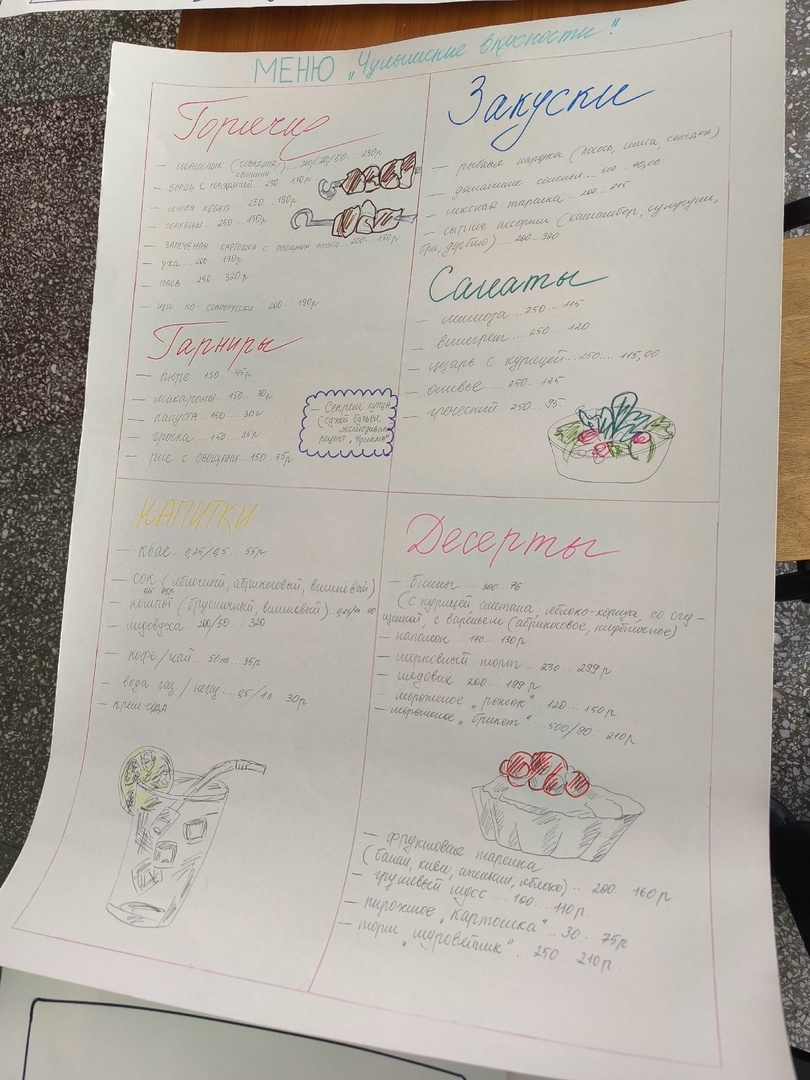 МЕНЮ „Чулымские вкусности"
Горячие
— шашлык (говядина/... 200/20/50 230р
свинина
— борщ с говядиной 250... 140р
— люля кебаб .. 250 .. 190р
— голубцы .. 250 .. 190р
— запечёная картошка с овощами ... 200 - 180р
— уха ... 200 ... 170р
— плов ... 250 ... 320р
— щи по-старорусски 200 190р
Гарниры
— пюре 150 45р
— макароны ... 150 ... 30р
— капуста .. 150 ... 30р
— гречка ... 150 ... 35р
— рис с овощами ... 150 ... 65р
— Секрет
(сухой бульон,
рецепт „Чулыма"
Закуски
— рыбная нарезка (лосось, сёмга, селёдка)
— домашние соленья ... 500 ... 70,00
— мясная тарелка ... 200 ... 215
— сырное ассорти (камамбер, сулугуни,
бри, дорблю) ... 200 .. 320
Салаты
— мимоза .. 250 .... 115
— винегрет ... 250 ... 120
— цезарь с курицей ... 250 .... 115,00
— оливье .... 250 .. 125
— греческий .. 250 .. 95
НАПИТКИ
— квас .. 0,25/0,5 .. 55р
— сок (яблочный, абрикосовый, вишнёвый)
— компот (брусничный, вишнёвый)
— медовуха .. 200/50 .. 320
— кофе/чай .. 50 ... 35р
— вода газ / негаз ... 0,5/1л 30р
— крем-сода
Десерты
— блины ... 300 .. 76
(с курицей, сметана, яблоко-корица, со сгу-
щёнкой, с вареньем (абрикосовое, клубничное)
— наполеон .. 170 ... 130р
— морковный торт ... 230 ... 299р
— медовик .. 200 ... 199р
— мороженое „рожок" 120 ... 150р
— мороженое „брикет" 500/90 210р
— фруктовая тарелка
(банан, киви, апельсин, яблоко) ... 200 160р
— грушевый мусс ... 100 ... 110р.
— пирожное „картошка" .. 30 .. 75р
— торт „муравейник" .. 250 .. 210р.